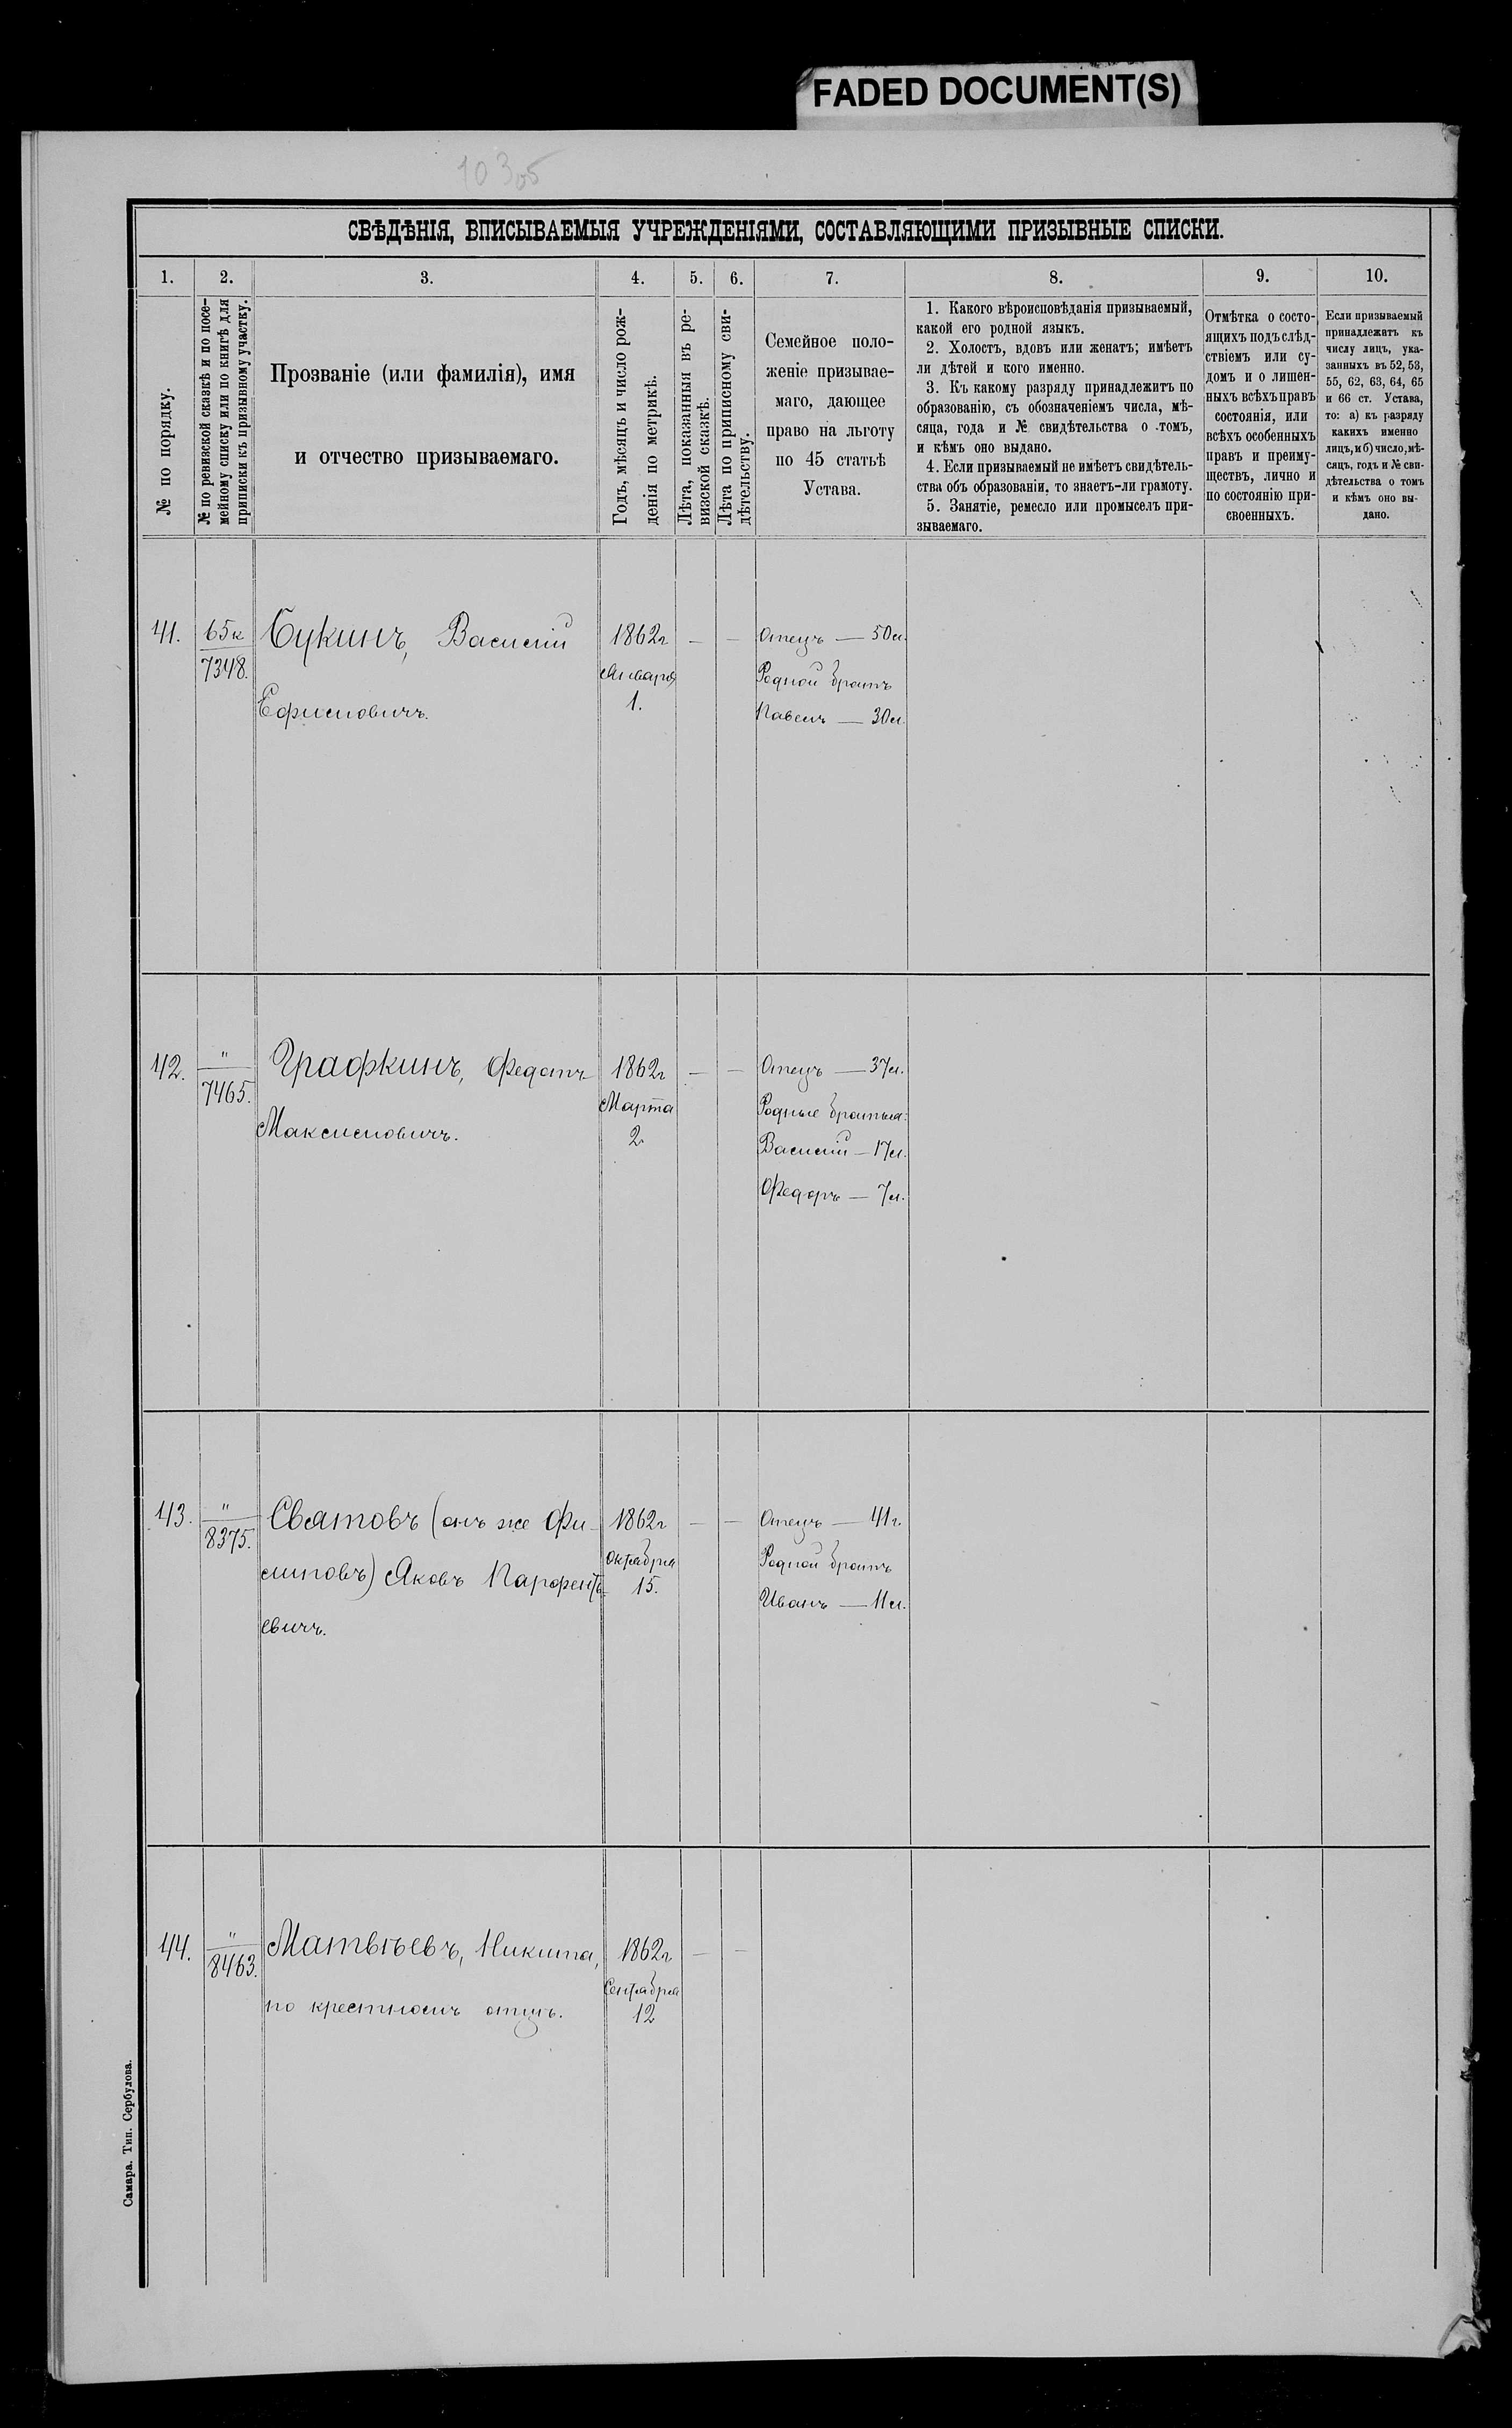 FADED DOCUMENT(S)
10305
СВѢДѢНІЯ, ВПИСЫВАЕМЫЯ УЧРЕЖДЕНІЯМИ, СОСТАВЛЯЮЩИМИ ПРИЗЫВНЫЕ СПИСКИ.
1.
2.
3.
4.
5.
6.
7.
8.
9.
10.
№ по порядку.
№ по ревизской сказкѣ и по посе-
мейному списку или по книгѣ для
приписки къ призывному участку.
Прозваніе (или фамилія), имя
и отчество призываемаго.
Годъ, мѣсяцъ и число рож-
денія по метрикѣ.
Лѣта, показанныя въ ре-
визской сказкѣ.
Лѣта по приписному сви-
дѣтельству.
Семейное поло-
женіе призывае-
маго, дающее
право на льготу
по 45 статьѣ
Устава.
1. Какого вѣроисповѣданія призываемый,
какой его родной языкъ.
2. Холостъ, вдовъ или женатъ; имѣетъ
ли дѣтей и кого именно.
3. Къ какому разряду принадлежитъ по
образованію, съ обозначеніемъ числа, мѣ-
сяца, года и № свидѣтельства о томъ,
и кѣмъ оно выдано.
4. Если призываемый не имѣетъ свидѣтель-
ства объ образованіи, то знаетъ-ли грамоту.
5. Занятіе, ремесло или промыселъ при-
зываемаго.
Отмѣтка о состо-
ящихъ подъ слѣд-
ствіемъ или су-
домъ и о лишен-
ныхъ всѣхъ правъ
состоянія, или
всѣхъ особенныхъ
правъ и преиму-
ществъ, лично и
по состоянію при-
своенныхъ.
Если призываемый
принадлежитъ къ
числу лицъ, ука-
занныхъ въ 52, 53,
55, 62, 63, 64, 65
и 66 ст. Устава,
то: а) къ разряду
какихъ именно
лицъ, и б) число, мѣ-
сяцъ, годъ и № сви-
дѣтельства о томъ
и кѣмъ оно вы-
дано.
41. 65к Букинъ, Василій 1862г — — Отецъ — 50л.
7348. Января Родной братъ
Ефимовичъ. 1. Павелъ — 30л.
42. " Графкинъ, Федотъ 1862г — — Отецъ — 37л.
7465. Марта Родные братья:
Максимовичъ. 2 Василій — 17л.
Федоръ — 7л.
43. " Святовъ (онъ же Фи- 1862г — — Отецъ — 41г.
8375. Октября Родной братъ
липовъ) Яковъ Парфентъ- 15. Иванъ — 11л.
евичъ.
44. " Матвѣевъ, Никита, 1862г — —
8463. Сентября
по крестномъ отцѣ. 12
Самара. Тип. Сербулова.